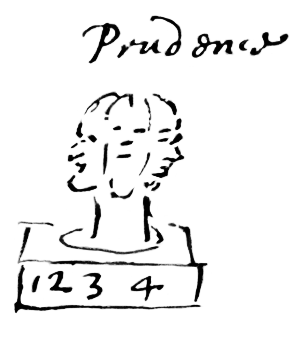 Prudence
1 2 3 4